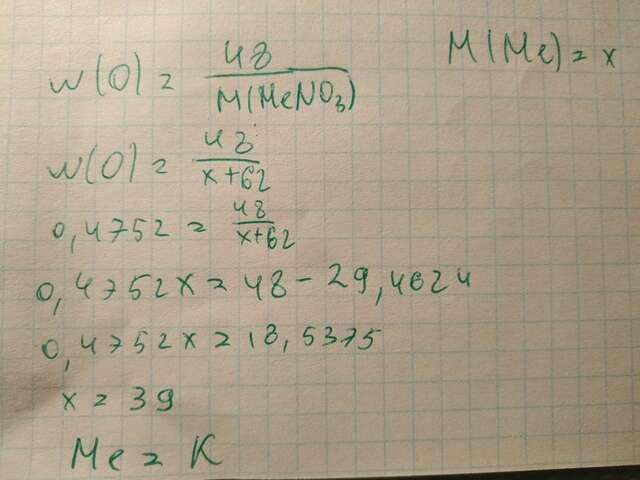 w(O) = 48 / M(MeNO₃)
M(Me) = x
w(O) = 48 / x+62
0,4752 = 48 / x+62
0,4752x = 48 - 29,4624
0,4752x = 18,5375
x = 39
Me = K